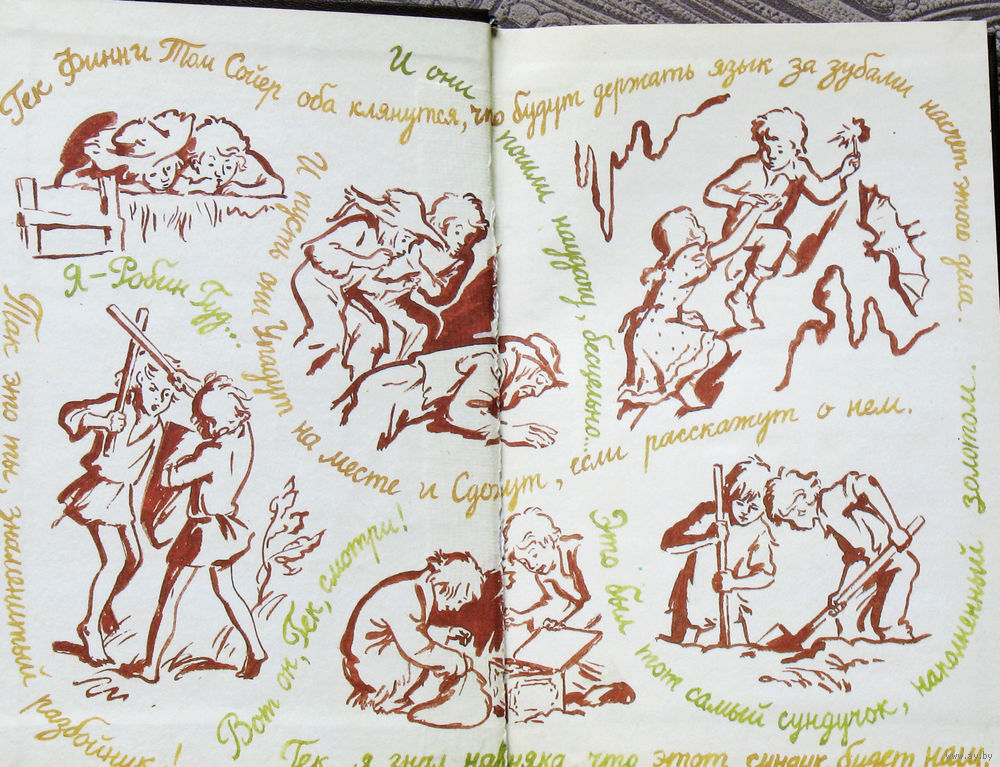 Гек Финн и Том Сойер оба клянутся, что будут держать язык за зубами насчет этого дела.
И пусть они Упадут на месте и Сдохнут, если расскажут о нем.
И они пошли наудачу, бесцельно...
Я – Робин Гуд...
Так это ты, знаменитый разбойник!
Вот он, Гек, смотри!
Это был тот самый сундучок, наполненный золотом.
Гек, я знал наверняка, что этот сундук будет наш.
www.ay.by